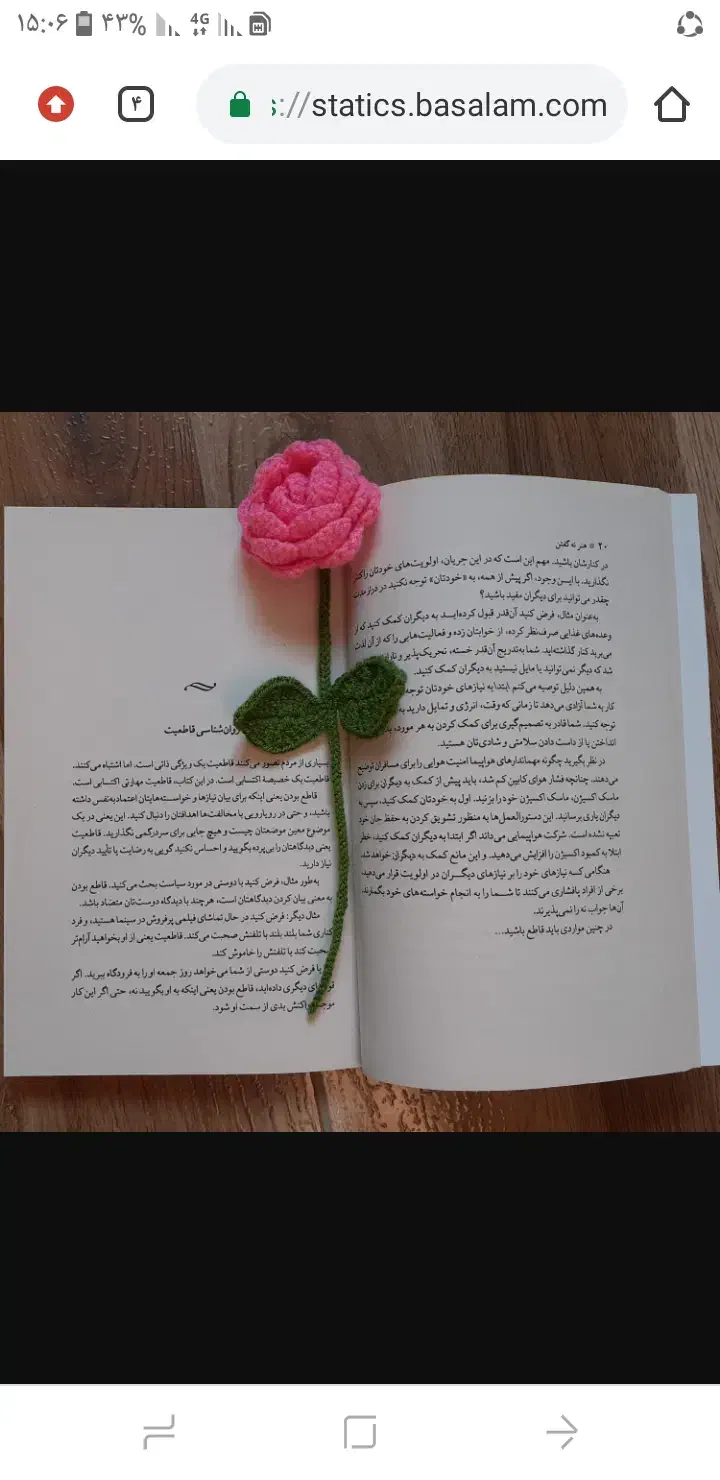 ۱۵:۰۶ ۴۳% 4G
۴ ://statics.basalam.com
۲۰ * هنر نه گفتن
در کنارشان باشید. مهم این است که در این جریان، اولویت‌های خودتان را کنار
نگذارید. با ایـن وجود، اگر پیش از همه، به «خودتان» توجه نکنید در درازمدت
چقدر می‌توانید برای دیگران مفید باشید؟
به‌عنوان مثال، فرض کنید آن‌قدر قبول کرده‌ایـد به دیگران کمک کنید که از
وعده‌های غذایی صرف‌نظر کرده، از خوابتان زده و فعالیت‌هایی را که از آن لذت
می‌برید کنار گذاشته‌اید. شما به‌تدریج آن‌قدر خسته، تحریک‌پذیر و
شد که دیگر نمی‌توانید یا مایل نیستید به دیگران کمک کنید.
به همین دلیل توصیه می‌کنم ابتدا به نیازهای خودتان توجه
کار به شما آزادی می‌دهد تا زمانی که وقت، انرژی و تمایل دارید به
توجه کنید. شما قادر به تصمیم‌گیری برای کمک کردن به هر مورد، به
انداختن یا از دست دادن سلامتی و شادی‌تان هستید.
در نظر بگیرید چگونه مهماندارهای هواپیما امنیت هوایی را برای مسافران توضیح
می‌دهند. چنانچه فشار هوای کابین کم شد، باید پیش از کمک به دیگران برای زدن
ماسک اکسیژن، ماسک اکسیژن خود را بزنید. اول به خودتان کمک کنید، سپس به
دیگران یاری برسانید. این دستورالعمل‌ها به منظور تشویق کردن به حفظ جان خود
تعبیه نشده است. شرکت هواپیمایی می‌داند اگر ابتدا به دیگران کمک کنید، خطر
ابتلا به کمبود اکسیژن را افزایش می‌دهید. و این مانع کمک به دیگران خواهد شد.
هنگامی کـه نیازهای خود را بر نیازهای دیگـــران در اولویت قرار می‌دهید،
برخی از افراد پافشاری می‌کنند تا شـــما را به انجام خواسته‌های خود بگمارند.
آن‌ها جواب نه را نمی‌پذیرند.
در چنین مواردی باید قاطع باشید...
روان‌شناسی قاطعیت
بسیاری از مردم تصور می‌کنند قاطعیت یک ویژگی ذاتی است. اما اشتباه می‌کنند.
قاطعیت یک خصیصهٔ اکتسابی است. در این کتاب، قاطعیت مهارتی اکتسابی است.
قاطع بودن یعنی اینکه برای بیان نیازها و خواسته‌هایتان اعتمادبه‌نفس داشته
باشید، و حتی در رویارویی با مخالفت‌ها اهدافتان را دنبال کنید. این یعنی در یک
موضوع معین موضعتان چیست و هیچ جایی برای سردرگمی نگذارید. قاطعیت
یعنی دیدگاهتان را بی‌پرده بگویید و احساس نکنید گویی به رضایت یا تأیید دیگران
نیاز دارید.
به‌طور مثال، فرض کنید با دوستی در مورد سیاست بحث می‌کنید. قاطع بودن
به معنی بیان کردن دیدگاهتان است، هرچند با دیدگاه دوست‌تان متضاد باشد.
مثال دیگر: فرض کنید در حال تماشای فیلمی پرفروش در سینما هستید، و فرد
کناری شما بلند بلند با تلفنش صحبت می‌کند. قاطعیت یعنی از او بخواهید آرام‌تر
صحبت کند یا تلفنش را خاموش کند.
یا فرض کنید دوستی از شما می‌خواهد روز جمعه او را به فرودگاه ببرید. اگر
دیگری داده‌اید، قاطع بودن یعنی اینکه به او بگویید نه، حتی اگر این کار
واکنش بدی از سمت او شود.